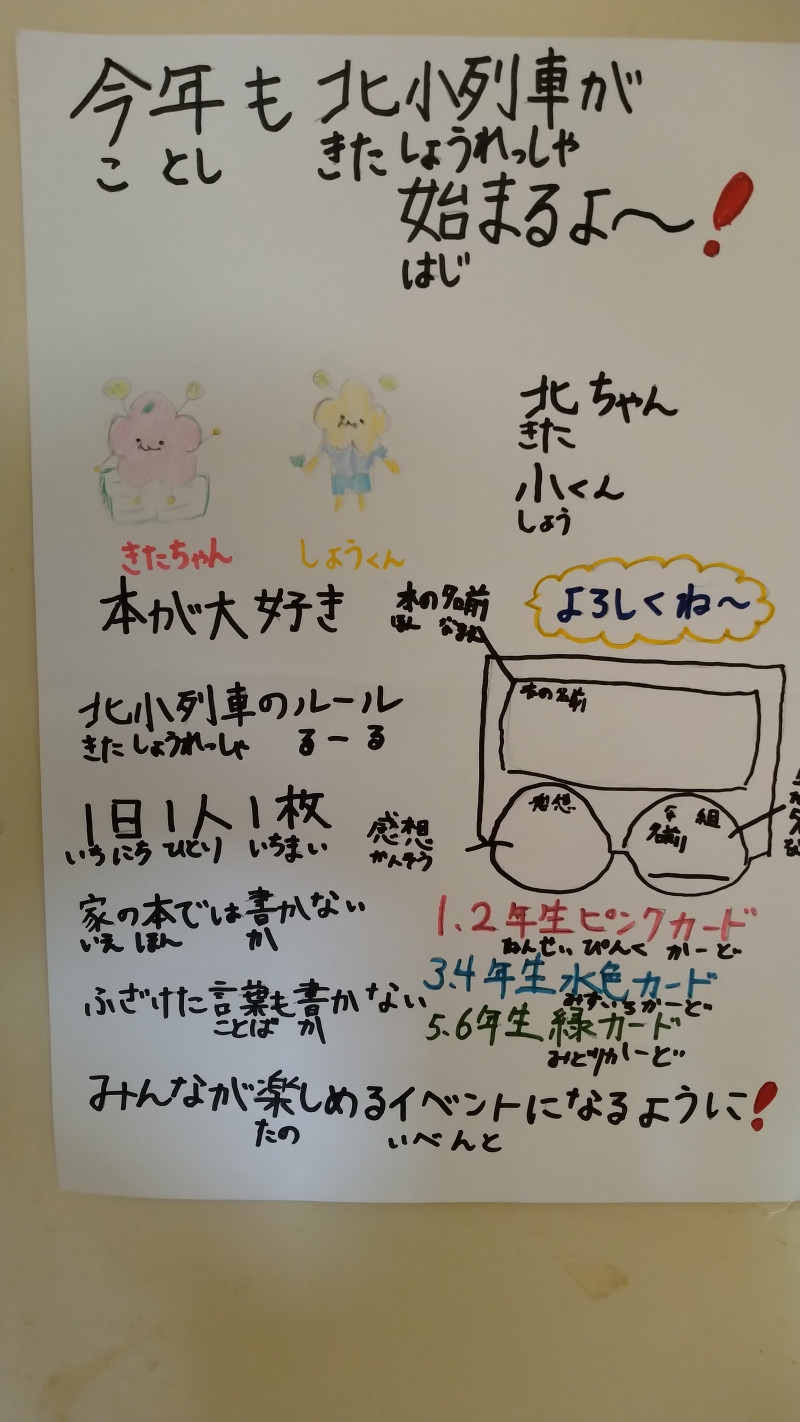 今年も北小列車が
ことし きたしょうれっしゃ
始まるよ〜!
はじ
北ちゃん
きた
小くん
しょう
きたちゃん
しょうくん
本が大好き
本の名前
ほん なまえ
よろしくね〜
本の名前
北小列車のルール
きたしょうれっしゃ るーる
1日1人1枚
いちにち ひとり いちまい
感想
かんそう
感想
年 組
名前
家の本では書かない
いえ ほん か
1.2年生ピンクカード
ねんせい ぴんく かーど
ふざけた言葉も書かない
ことば か
3.4年生水色カード
みずいろかーど
5.6年生緑カード
みどりかーど
みんなが楽しめるイベントになるように!
たの いべんと